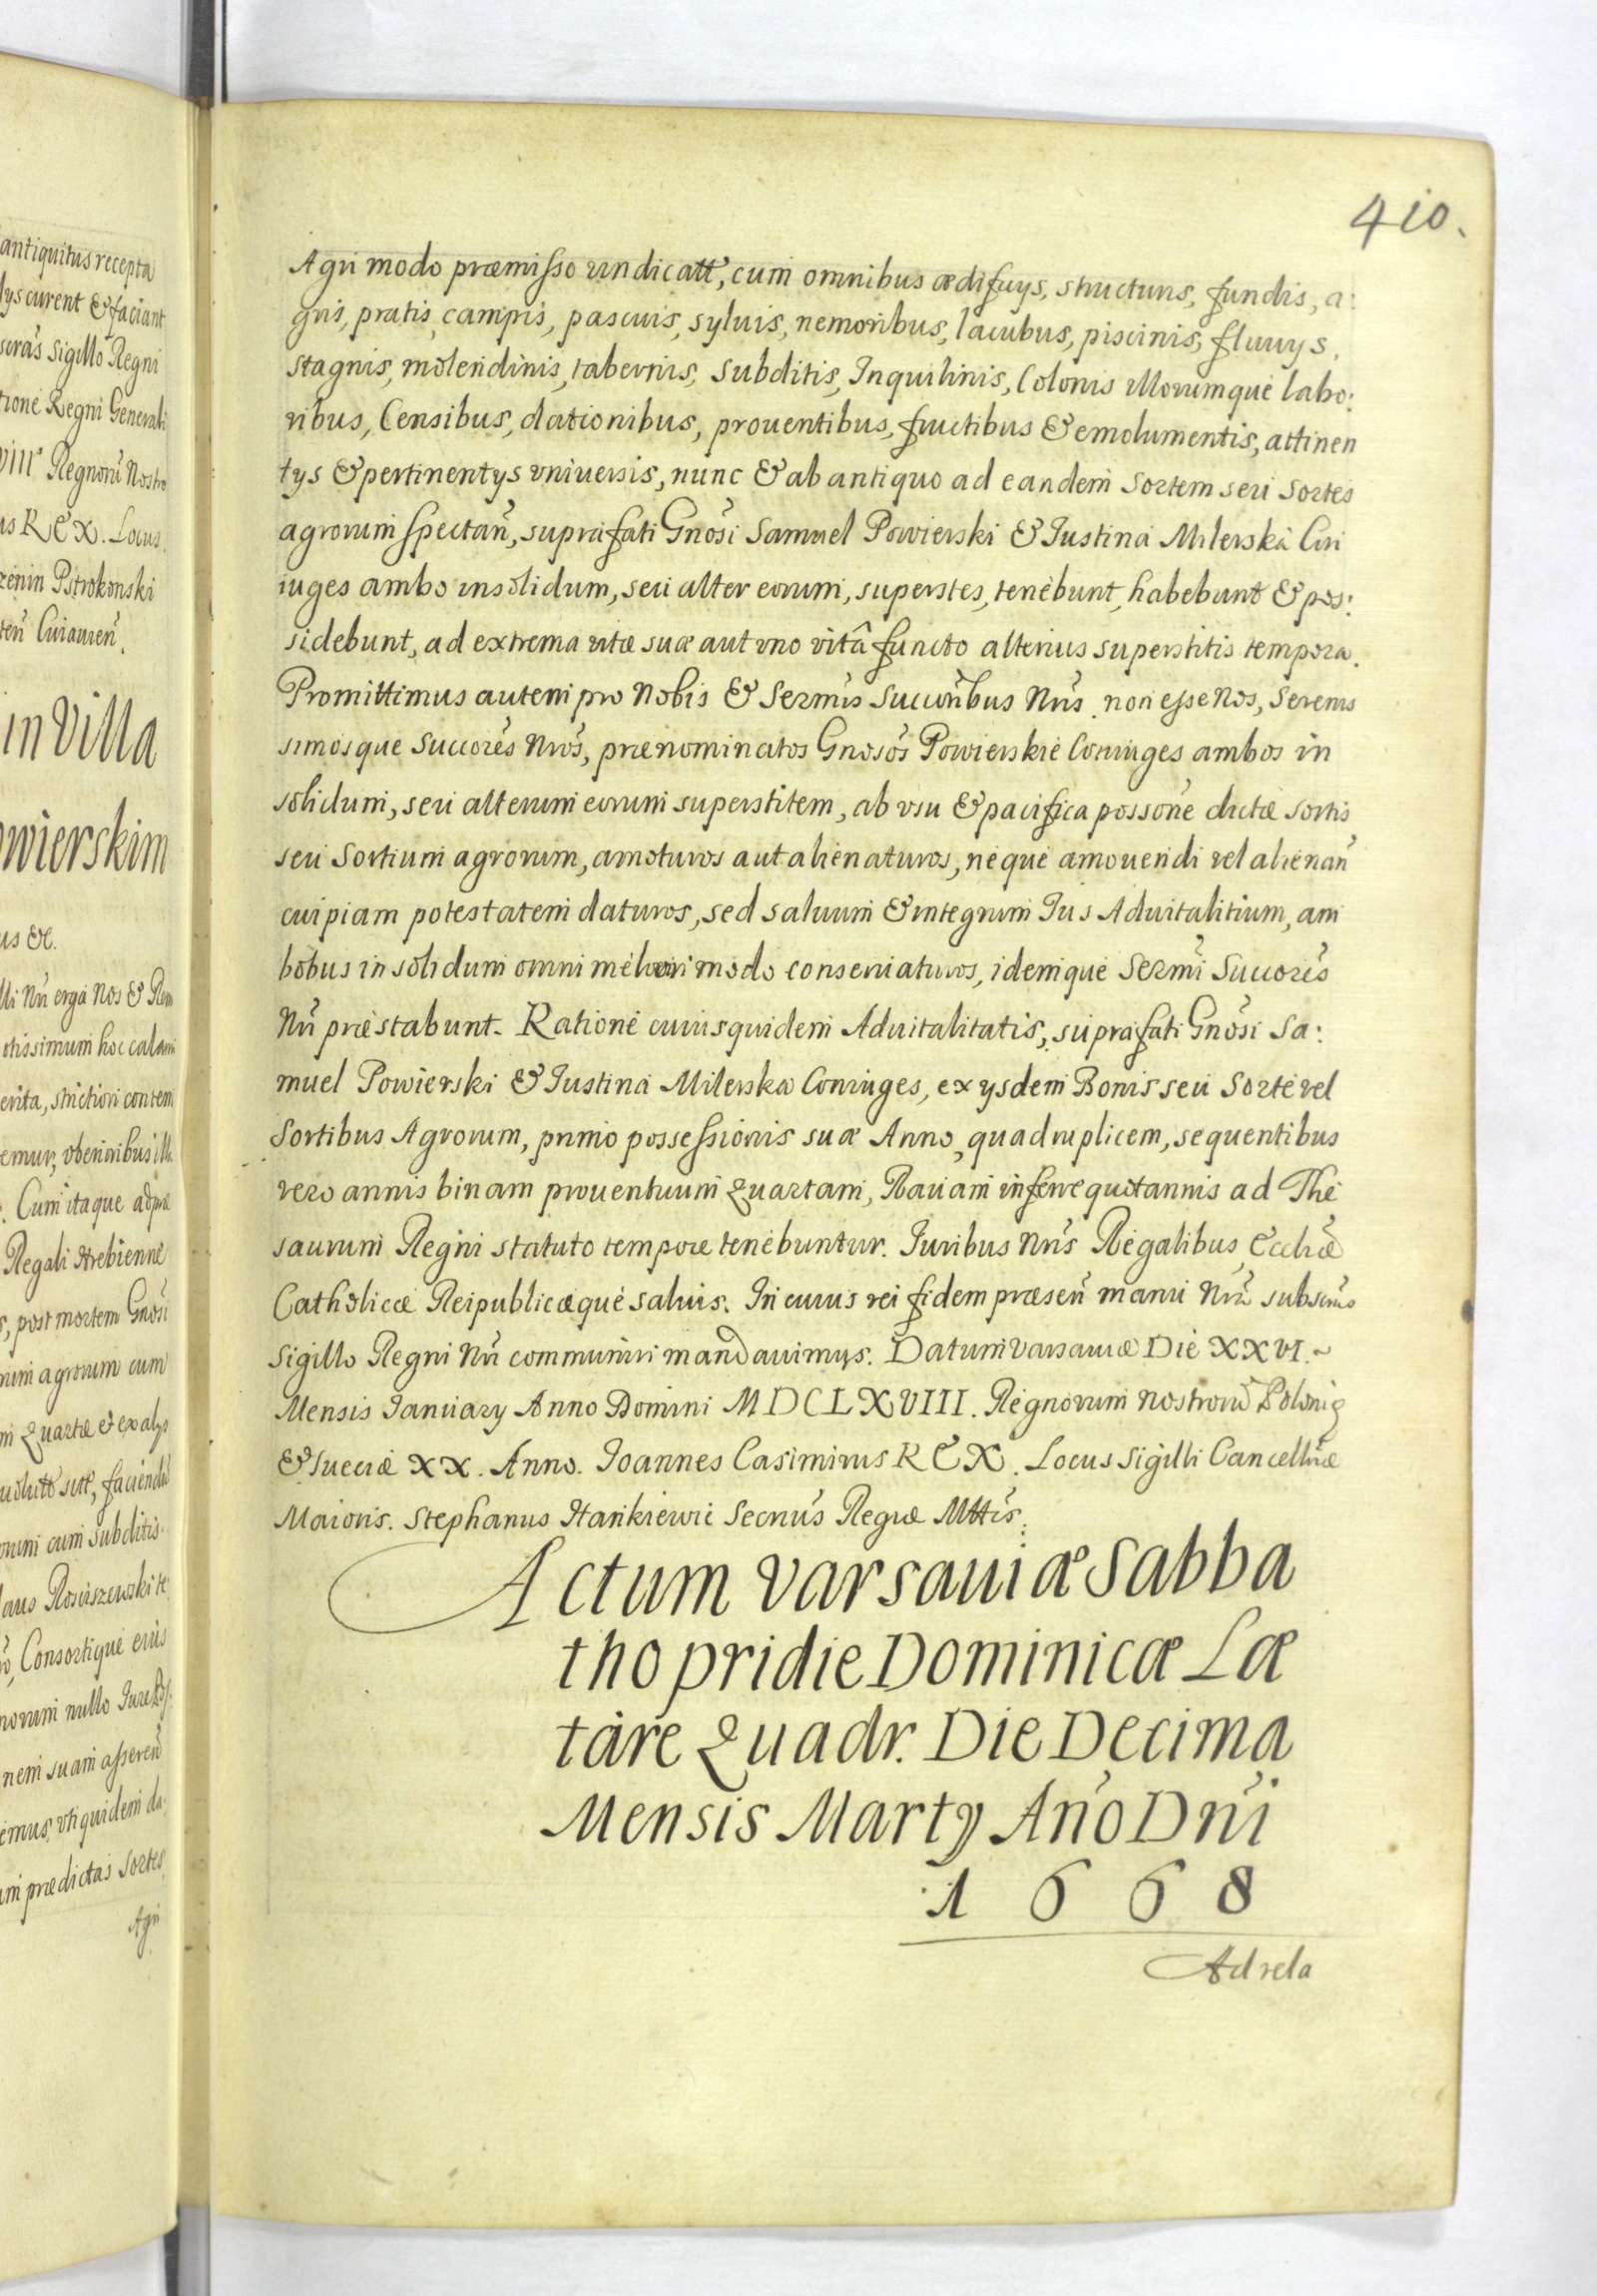 antiquitus recepta
lys curent & faciant
Sigillo Regni
Regni Generali
VIII° Regnorũ Nostro
us REX. Locus
Pstrokonski
Cuiauień.
in Villa
owierskim
us &c.
Nrĩ erga Nos & Rem
otissimum hoc calam
erita, strictiori contem
emur, vberioribus ill
Cum itaque
Regali Strebienne
s, post mortem Gnosi
agrorum cum
Quartæ et ex alys
faciendũ
cum subditis
Rosciszewski te
Consortique eius
nullo Jure
nem suam asseren̄
emus, vti quidem da
prædictas sortes
Agri
410.
Agri modo præmisso vindicatt, cum omnibus ædificys, structuris, fundis, a:
gris, pratis, campis, pascuis, syluis, nemoribus, lacubus, piscinis, fluuys,
stagnis, molendinis, tabernis, subditis, Inquilinis, Colonis illorumque labo:
ribus, Censibus, dationibus, prouentibus, fructibus & emolumentis, attinen
tys & pertinentys vniuersis, nunc & ab antiquo ad eandem sortem seu sortes
agrorum spectan̄, suprafati Gnosi Samuel Powierski & Iustina Milerska Con
iuges ambo insolidum, seu alter eorum, superstes, tenebunt, habebunt & pos:
sidebunt, ad extrema vitæ suæ aut vno vitâ functo alterius superstitis tempora.
Promittimus autem pro Nobis & Sermis Succoribus Nris, non esse Nos, Serenis
simosque Succores Nros, prænominatos Gnosos Powierskie Coniuges ambos in
solidum, seu alterum eorum superstitem, ab vsu & pacifica possone dictæ sortis
seu Sortium agrorum, amoturos aut alienaturos, neque amouendi vel alienan̄
cuipiam potestatem daturos, sed saluum & integrum Ius Aduitalitium, am
bobus in solidum omni meliori modo conseruaturos, idemque Sermi Succores
Nri præstabunt. Ratione cuiusquidem Aduitalitatis, suprafati Gnosi Sa:
muel Powierski & Iustina Milerska Coniuges, ex ysdem Bonis seu Sorte vel
Sortibus Agrorum, primo possessionis suæ Anno, quadruplicem, sequentibus
vero annis binam prouentuum Quartam, Rauam inferre quotannis ad The
saurum Regni statuto tempore tenebuntur. Iuribus Nris Regalibus, Eccliæ
Catholicæ Reipublicæque saluis. In cuius rei fidem præsen̄ manu Nra subscrips
Sigillo Regni Nri communiri mandauimus. Datum Varsauiæ Die XXVI.~
Mensis Ianuary Anno Domini MDCLXVIII. Regnorum nostrorũ Polonię
& Sueciæ XX. Anno. Ioannes Casimirus REX. Locus Sigilli Cancellriæ
Maioris. Stephanus Hankiewic Secrius Regiæ Mttis.
Actum Varsauiæ Sabba
tho pridie Dominicæ Læ
tare Quadr. Die Decima
Mensis Marty Año Dñi
1668
Ad rela